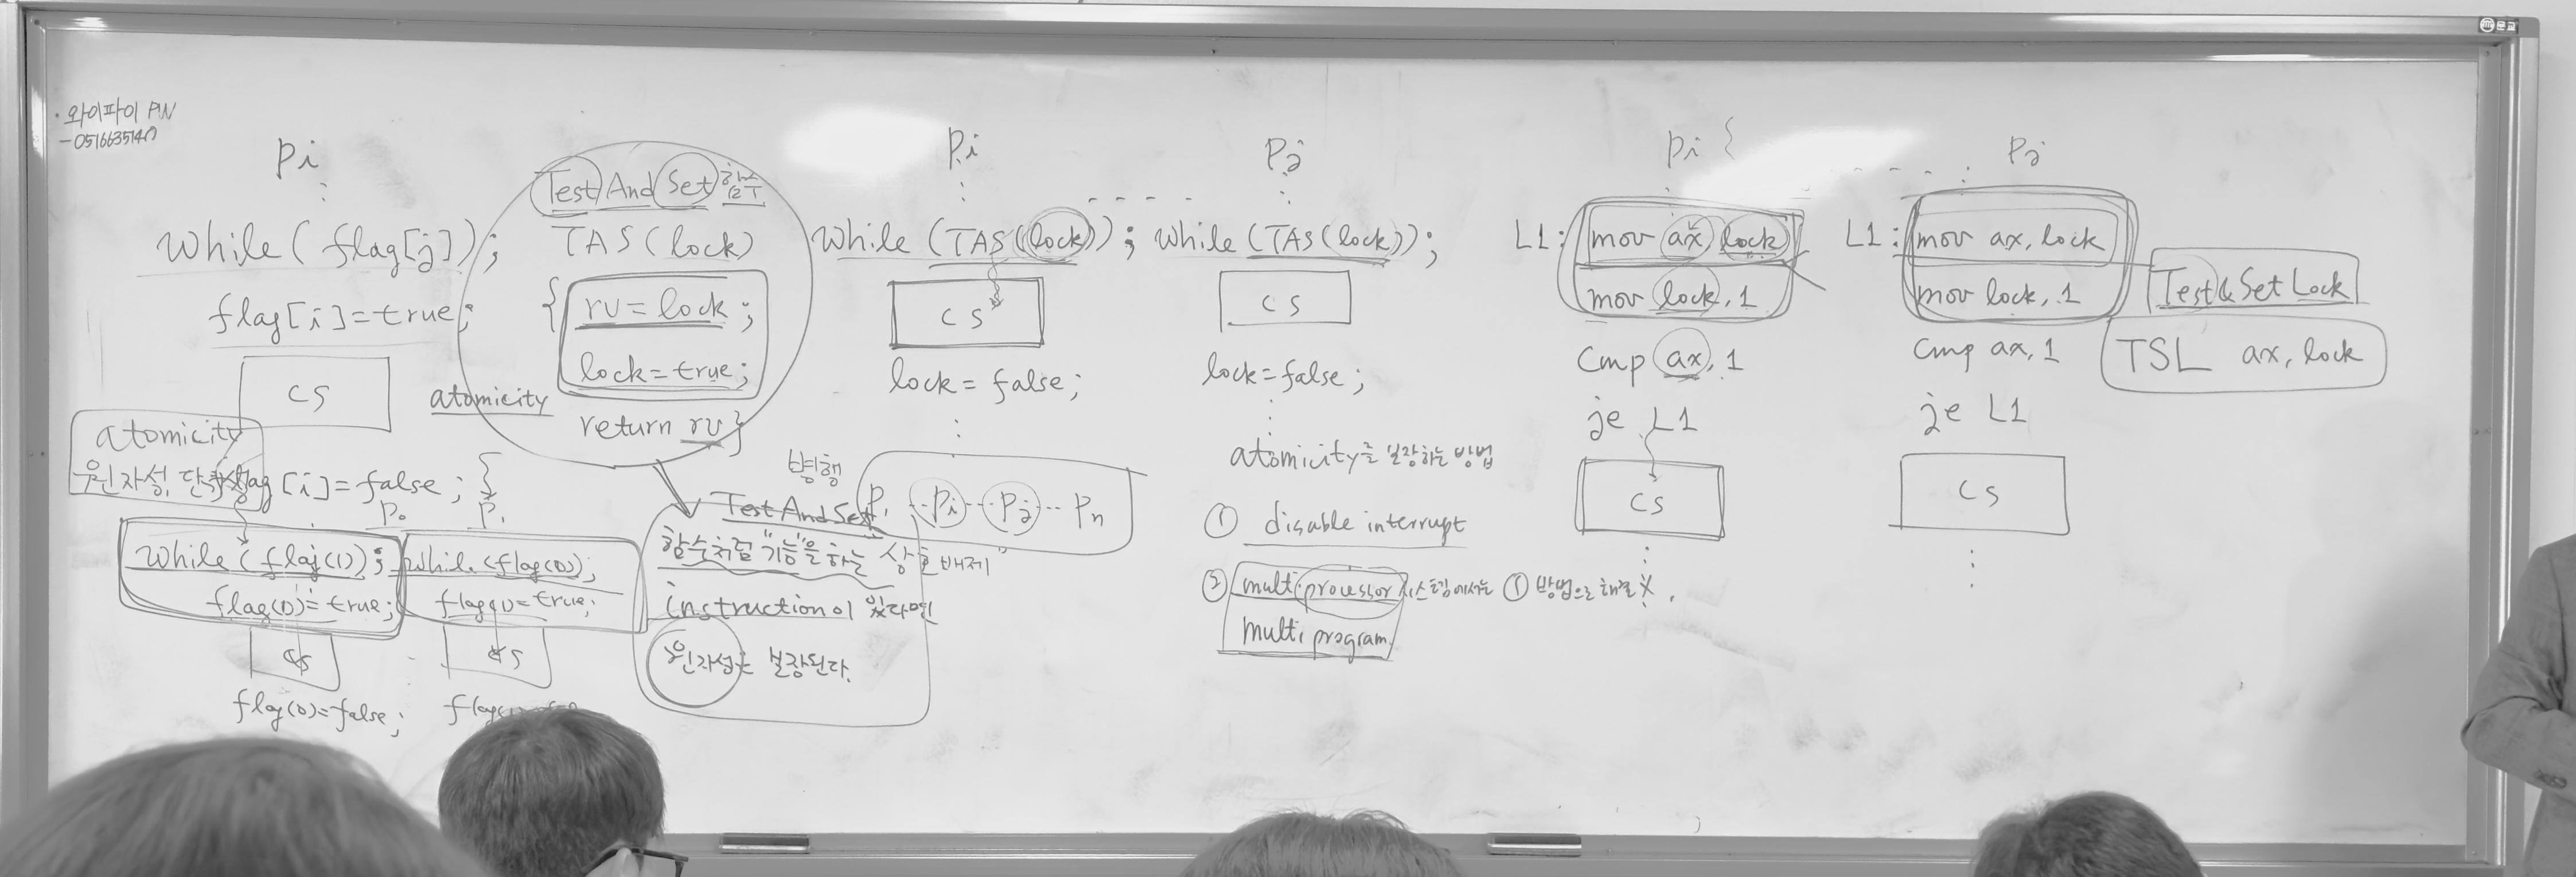 · 와이파이 PIN
Pi
while ( flag[j] );
flag[i]=true;
CS
atomicity
원자성, 단
flag[i]=false;
P0
P1
while (flag(1));
flag(0)=true;
CS
flag(0)=false;
while (flag(0));
flag(1)=true;
CS
Test And Set 함수
TAS (lock)
{ rv = lock ;
lock = true ;
return rv }
atomicity
Test And Set
함수처럼 "기능"을 하는
instruction이 있다면
원자성은 보장된다.
병행
P1 ...Pi... Pj... Pn
상호배제
Pi
while (TAS(lock));
CS
lock = false;
Pj
while (TAS(lock));
CS
lock=false;
atomicity를 보장하는 방법
① disable interrupt
② multiprocessor 시스템에서는 ① 방법으로 해결 X.
multiprogram
Pi {
L1: mov ax, lock
mov lock, 1
Cmp ax, 1
je L1
CS
Pj
L1: mov ax, lock
mov lock, 1
Cmp ax, 1
je L1
CS
Test & Set Lock
TSL ax, lock